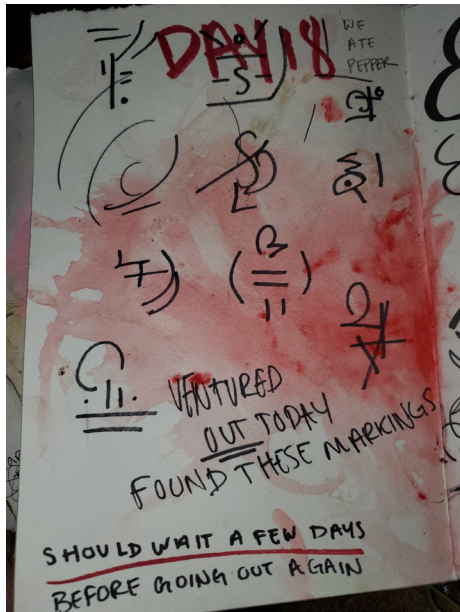 DAY 18
WE
ATE
PEPPER
VENTURED
OUT TODAY
FOUND THESE MARKINGS
SHOULD WAIT A FEW DAYS
BEFORE GOING OUT AGAIN